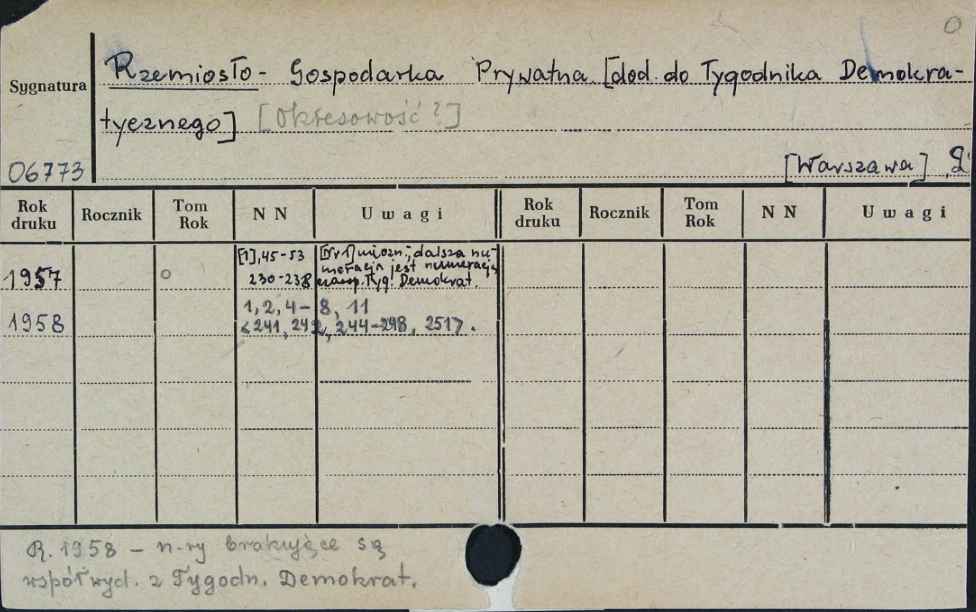 Rzemiosło - Gospodarka Prywatna [dod. do Tygodnika Demokra-
Sygnatura
tycznego] [Okresowość?]
06773 [Warszawa] 2°
Rok druku Rocznik Tom Rok N N Uwagi Rok druku Rocznik Tom Rok N N Uwagi
[1], 45-53 [Nr 1] niozn.; dalsza nu-
meracja jest numeracją
1957 230-238 czasop. Tyg. Demokrat.
1, 2, 4-8, 11
1958 <241, 242, 244-298, 251>.
R. 1958 - n-ry brakujące są
współwyd. z Tygodn. Demokrat.